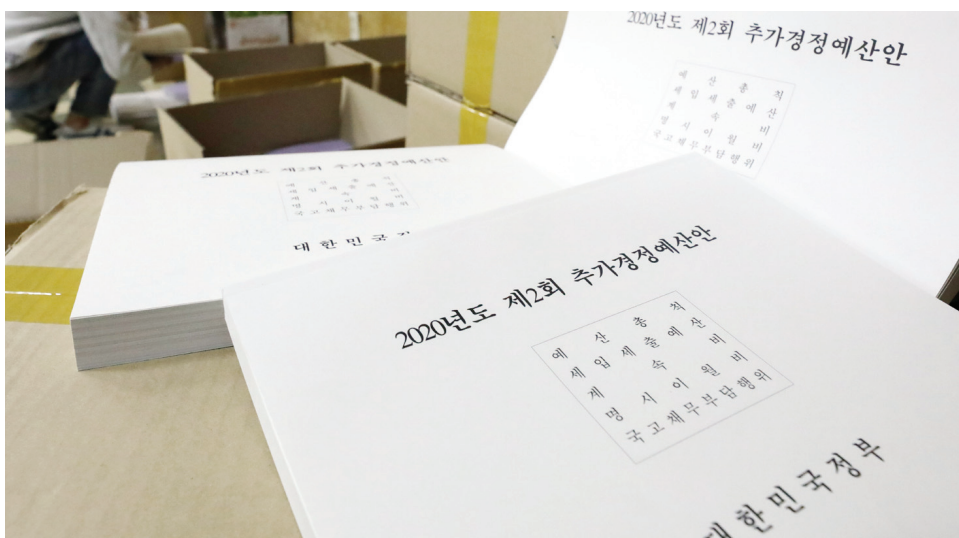 2020년도 제2회 추가경정예산안
예산총칙
세입세출예산
계속비
명시이월비
국고채무부담행위
2020년도 제2회 추가경정예산안
예산총칙
세입세출예산
계속비
명시이월비
국고채무부담행위
대한민국정
2020년도 제2회 추가경정예산안
예산총칙
세입세출예산
계속비
명시이월비
국고채무부담행위
대한민국정부